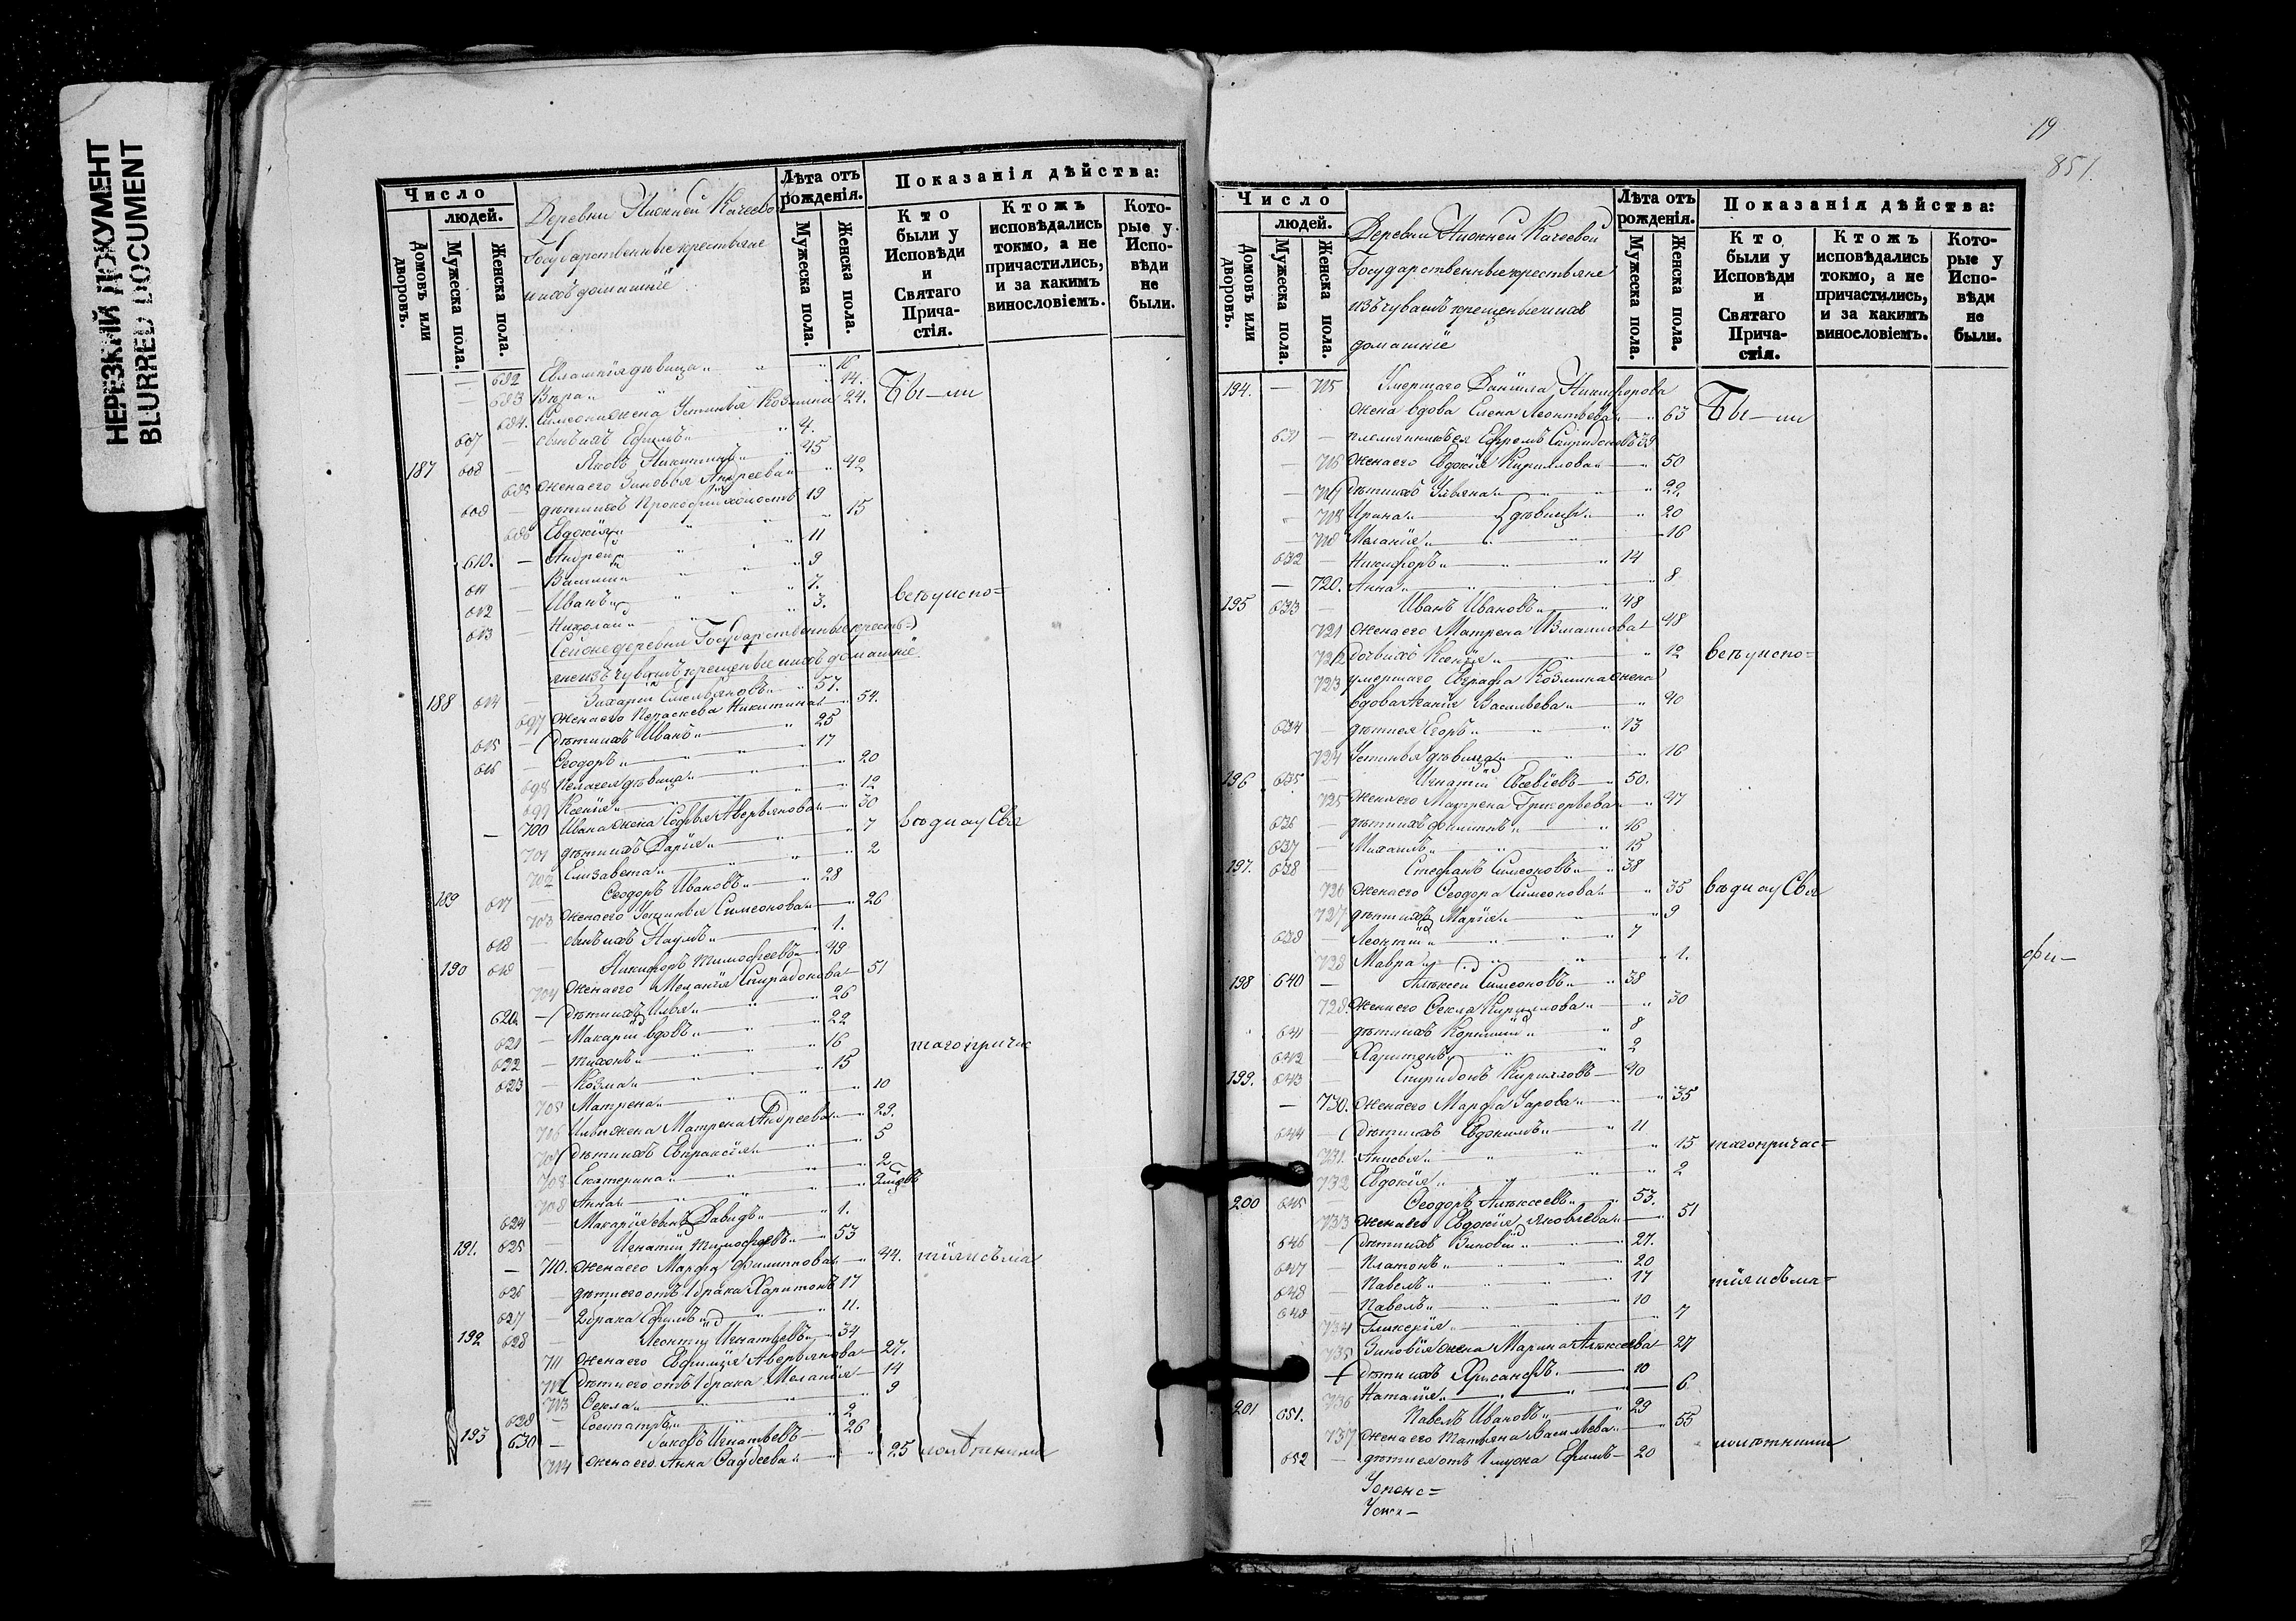 НЕРЕЗКИЙ ДОКУМЕНТ
BLURRED DOCUMENT
Число
людей.
Домовъ или дворовъ.
Мужеска пола.
Женска пола.
Деревни Нижней Качеевой
Государственные крестьяне
и ихъ домашніе
Лѣта отъ рожденія.
Мужеска пола.
Женска пола.
Показанія дѣйства:
Кто были у Исповѣди и Святаго Прича-стія.
Ктожъ исповѣдались токмо, а не причастились, и за какимъ винословіемъ.
Кото-рые у Испо-вѣди не были.
692 девица 16
693 Вѣра 14. Бы-ли
694. Симеона жена Устинья Козмина 24.
607 сынъ ихъ Ефимъ 4.
187 608 Яковъ Никитинъ 45
695 жена его Зиновья Андреева 42
609 дѣти ихъ Прокофій холостъ 19
696 Евдокія 15
610. Андрей 11
611 Василий 9
612 Иванъ 7. всѣ у испо=
613 Николай 3.
Сей же деревни Государственные кресть=
яне изъ чувашъ крещеные и ихъ домашніе
188 614 Захаръ Емельяновъ 57.
697 жена его Параскева Никитина 54.
615 дѣти ихъ Иванъ 25
616 Ѳеодоръ 17
698 Пелагея дѣвица 20
699 Ксенія 12
700 Ивана жена Софья Аверьянова 30
701 дѣти ихъ Дарія 7 вѣди и у Свя
702 Елизавета 2
189 617 Ѳеодоръ Ивановъ 28
703 жена его Устинья Симеонова 26
618 сынъ ихъ Наумъ 1.
190 619 Никифоръ Тимофеевъ 49
704 жена его Меланія Спиридонова 51
620 дѣти ихъ Илья 26
621 Макарій вдовъ 22
622 Тихонъ 16 таго причас
623 Козма 15
705 Матрена 10
706 Ильи жена Матрена Андреева 29.
707 дѣти ихъ Евпраксія 5
708 Екатерина 2
709 Анна
624 Макарія сынъ Давидъ 1.
191. 625 Игнатій Тимофеевъ 53
710. жена его Марфа Филиппова 44. тія и съ ма
626 дѣти его отъ 1 брака Харитонъ 17
627 2 брака Ефимъ 11.
192 628 Леонтій Игнатьевъ 34
711 жена его Евфимія Аверьянова 27.
712 дѣти его отъ 1 брака Меланія 14
713 Ѳекла 9
629 Сосипатръ 2
193 630 Іаковъ Игнатьевъ 26
714 жена его Анна Фаддеева 25 лолѣтними
19
851.
Число
людей.
Домовъ или дворовъ.
Мужеска пола.
Женска пола.
Деревни Нижней Качеевой
Государственные крестьяне
изъ чувашъ крещеные и ихъ
домашніе
Лѣта отъ рожденія.
Мужеска пола.
Женска пола.
Показанія дѣйства:
Кто были у Исповѣди и Святаго Прича-стія.
Ктожъ исповѣдались токмо, а не причастились, и за какимъ винословіемъ.
Кото-рые у Испо-вѣди не были.
194. 715 Умершаго Даніила Никифорова
жена вдова Елена Леонтьева 63 Бы-ли
631 племянникъ ея Ефремъ Спиридоновъ 39
716 жена его Евдокія Кирилова 50
717 дѣти ихъ Ульяна 22
718 Ирина дѣвицы 20
719 Меланія 16
632 Никифоръ 14
720. Анна 8
195 633 Иванъ Ивановъ 48
721 жена его Матрена Измаилова 48
722 дочь ихъ Ксенія 12 всѣ у испо=
723 умершаго Евграфа Козмина жена
вдова Васильева 40
634 дѣти ея Егоръ 13
724 Устинья дѣвица 16
196 635 Игнатій Евсѣвіевъ 50.
725 жена его Матрена Григорьева 47
636 дѣти ихъ Филиппъ 16
637 Михаилъ 15
197. 638 Стефанъ Симеоновъ 38
726 жена его Ѳеодора Симеонова 35 вѣди и у Свя
727 дѣти ихъ Марія 9
639 Леонтій 7
728 Мавра 1.
198 640 Алексѣй Симеоновъ 38
729. жена его Ѳекла Кирилова 30
641 дѣти ихъ Корнилій 8
642 Харитонъ 2
199. 643 Спиридонъ Кириловъ 40
730. жена его Марфа Уарова 35
644 дѣти ихъ Евдокимъ 11
731. Анисья 15 таго причас=
732 Евдокія 2
200 645 Ѳеодоръ Алексеевъ 53.
733 жена его Евдокія Яковлева 51
646 дѣти ихъ Зиновій 27.
647 Платонъ 20
648 Павелъ 17 тія и съ ма=
649 Павелъ 10
734 Гликерія 7
735 Зиновія жена Марина Алексеева 27
дѣти ихъ Хрисанфъ 10
736 Наталія 6
201 651. Павелъ Ивановъ 29
737 жена его Татьяна Васильева 55
652 дѣти ея отъ 1 мужа Ефимъ 20 лолѣтними
Успенс=